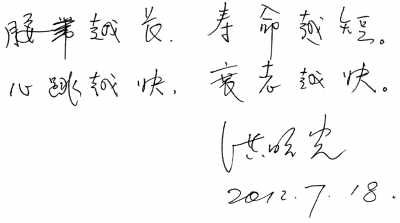 腰带越长，寿命越短。
心跳越快，衰老越快。
洪昭光
2012.7.18.